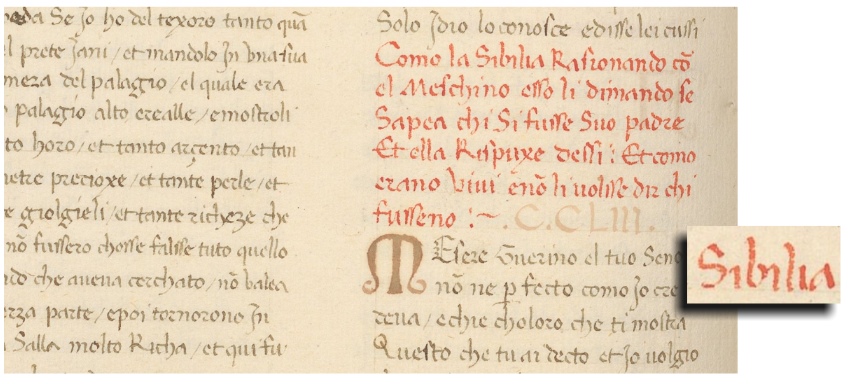 Se Jo ho del texoro tanto quā
l prete Jani / et mandolo Jn vna sua
mera del palagio / el quale era
palagio alto e realle / e mostroli
to horo / et tanto argento / et tan
pietre precioxe / et tante perle / et
e giolgieli / et tante richeze che
nō fussero chosse falsse tuto quello
ndo che auena cerchato / nō valea
erza parte / e poi tornorono Jn
Salla molto Richa / et qui fu
Solo Jdio lo conosce e disse lei cussi
Como la Sibilia Rasionando cō
el Meschino esso li dimando se
Sapea chi Si fusse Suo padre
Et ella Rispuxe dessi : Et como
erano vivi e nō li volsse dir chi
fusseno : ~ . C.CLIII.
Mesere Guerino el tuo Sen
nō ne ꝑfecto como Jo cre
deua / e chie choloro che ti mostra
Questo che tu ai decto et Jo volgio
Sibilia